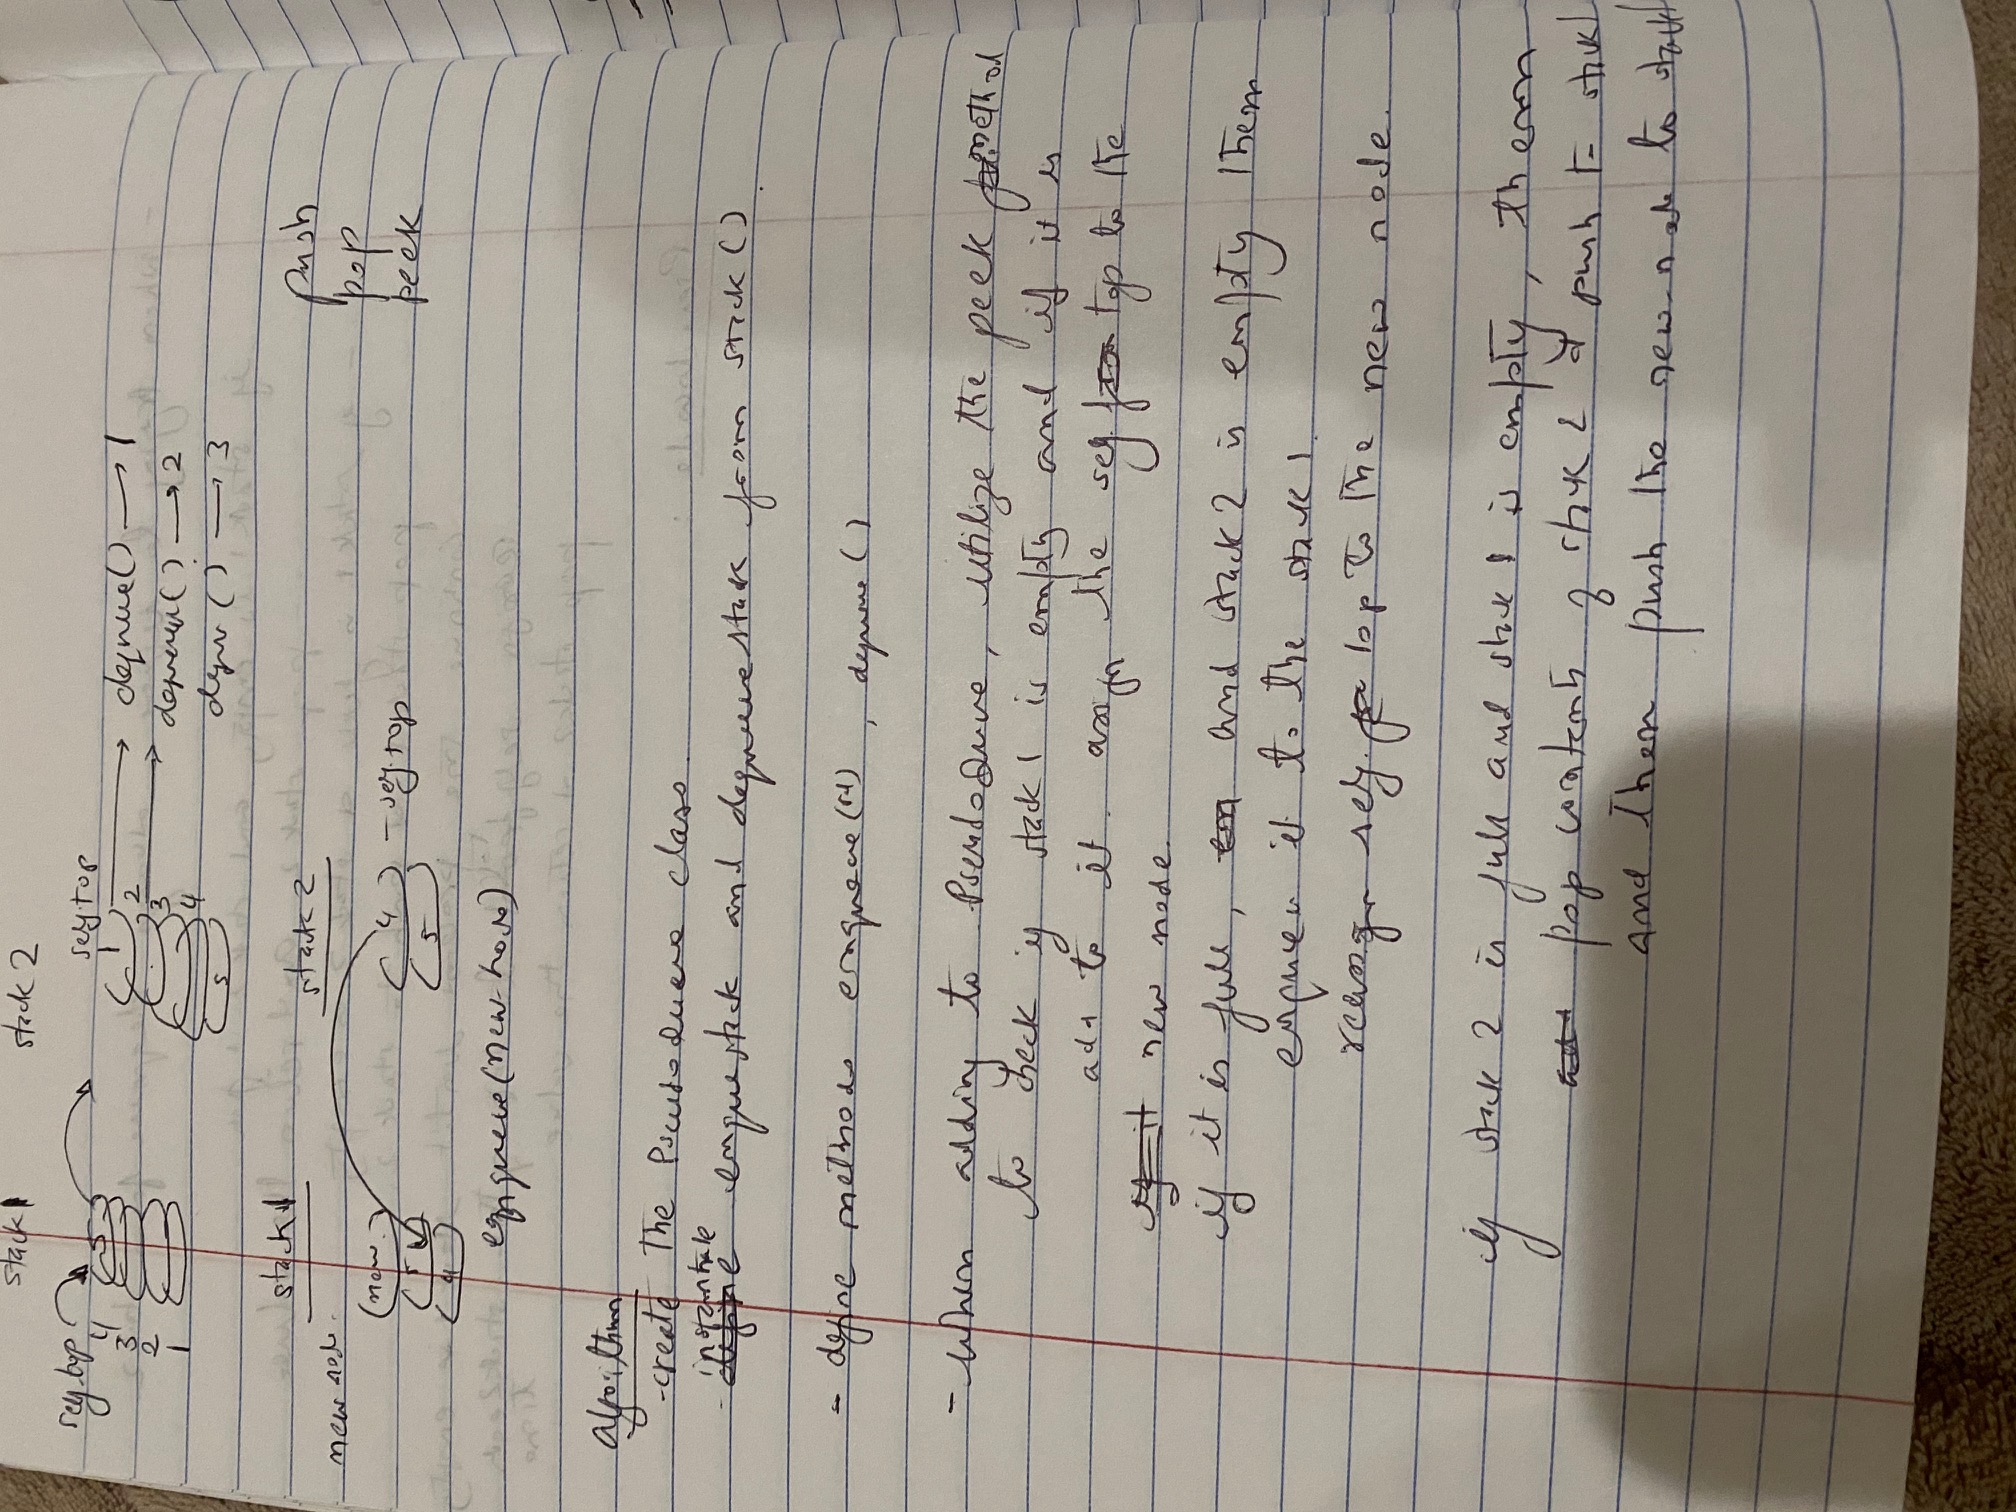 stack1 stack 2
self.top self.top
5
4
3
2
1
1
2
3
4
5
dequeue() → 1
dequeue() → 2
deque() → 3
stack1 stack 2
new node.
(new)
5
4
4 - self.top
5
push
pop
peek
enqueue(new-node)
algorithm
- create The PseudoQueue class.
instantiate
- define enquestack and dequeuestack from stack().
- define methods enqueue( ), dequeue()
- when adding to PseudoQueue, utilize the peek method
to check if stack 1 is empty and if it is
add to it. assign the self. top to the
if it new node.
if it is full, and stack 2 is empty then
enqueue it to the stack 1.
reassign self. top to The new node.
if stack 2 is full and stack 1 is empty, then
add pop contents of stack 2 & push to stack1
and then push the new-node to stack1